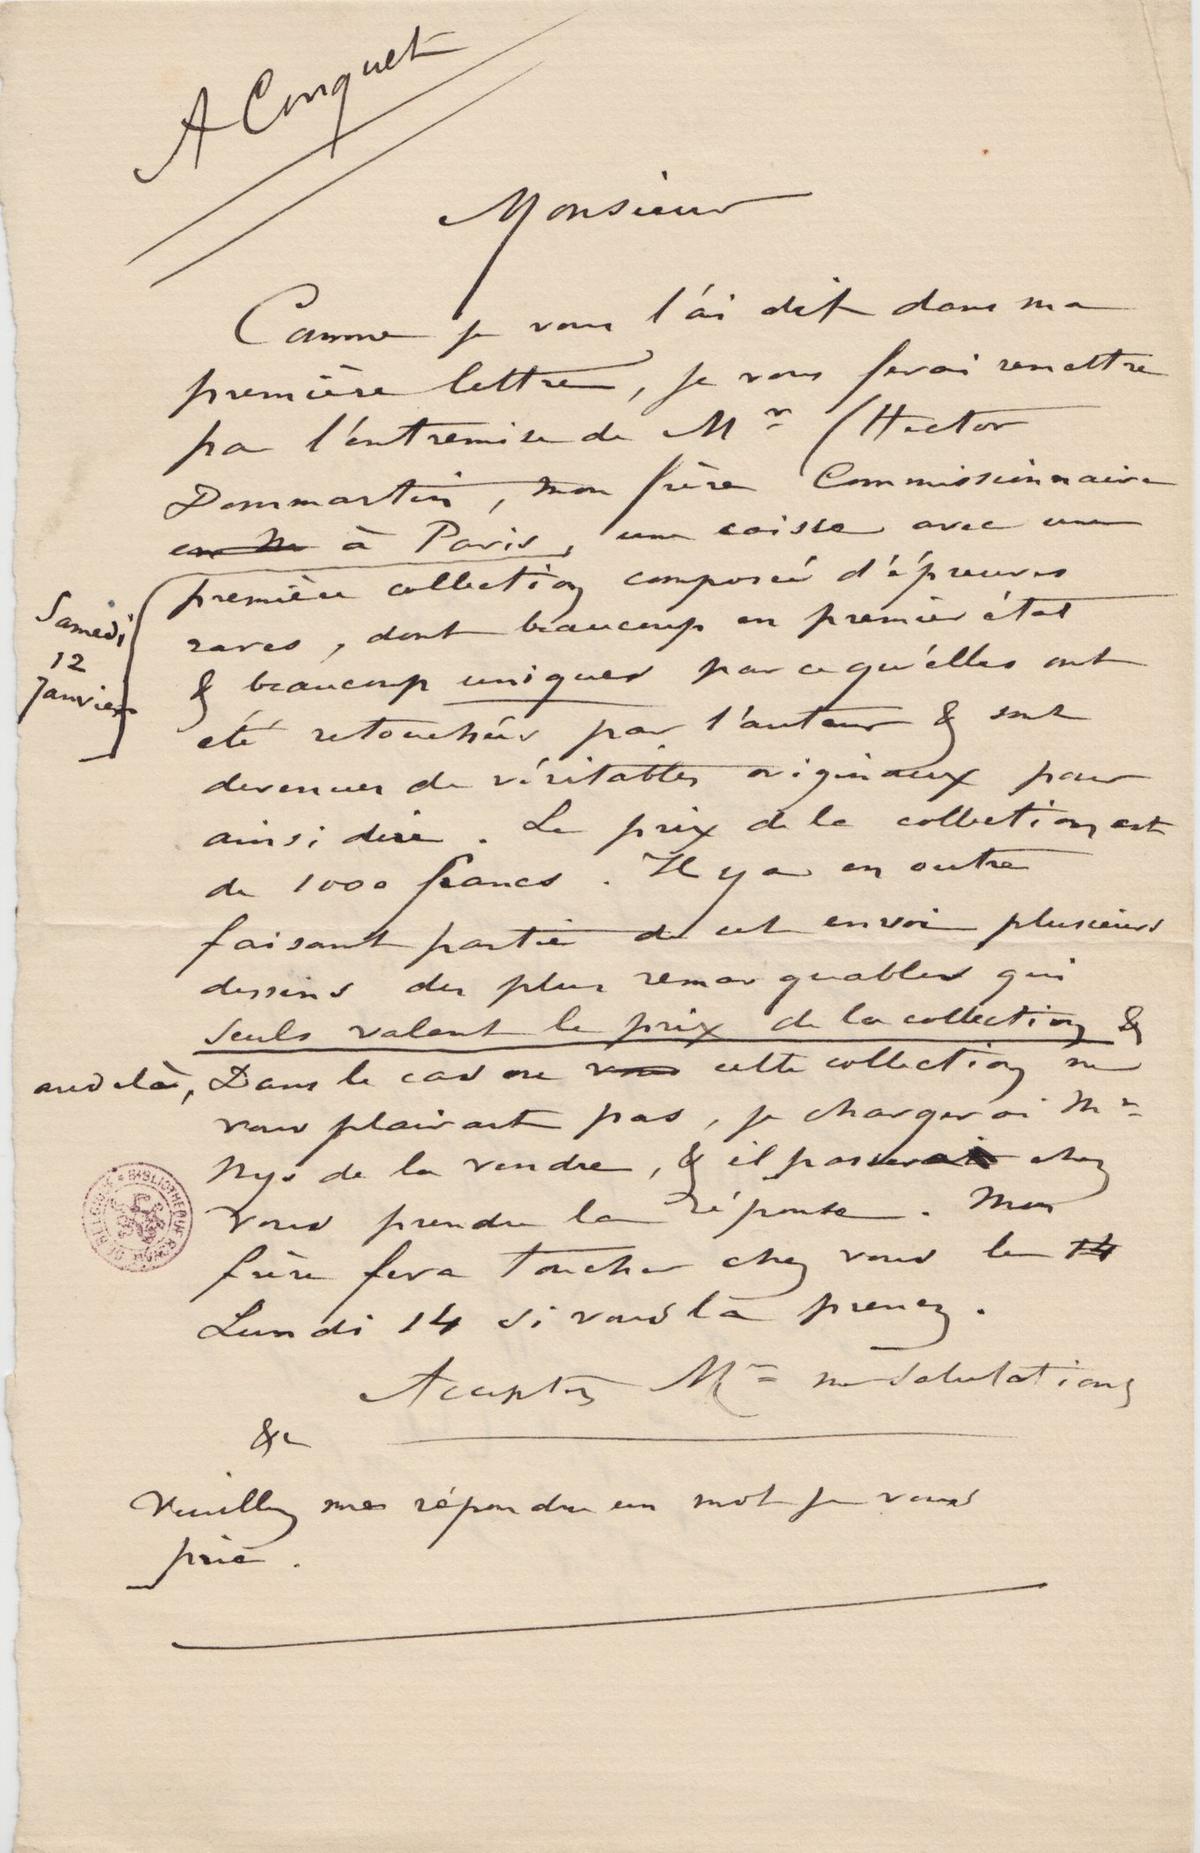 A Conquet
Monsieur
Comme je vous l'ai dit dans ma
première lettre, je vous ferai remettre
par l'entremise de Mr Hector
Dommartin, mon frère Commissionnaire
à Paris, une caisse avec une
première collection composée d'épreuves
rares, dont beaucoup en premier état
& beaucoup uniques parce qu'elles ont
été retouchées par l'auteur & sont
devenues de véritables originaux pour
ainsi dire. Le prix de la collection est
de 1000 francs. Il y a en outre
faisant partie de cet envoi plusieurs
dessins des plus remarquables qui
seuls valent le prix de la collection &
au delà, Dans le cas où vous cette collection ne
vous plairait pas, je chargerai Mr
Nys de la vendre, & il passera chez
vous prendre la réponse. Mon
frère fera toucher chez vous le 14
Lundi 14 si vous la prenez.
Acceptez Mr mes Salutations
&c
Veuillez me répondre un mot je vous
prie.
Samedi
12
Janvier
BIBLIOTHEQUE R
DE BELGIQUE